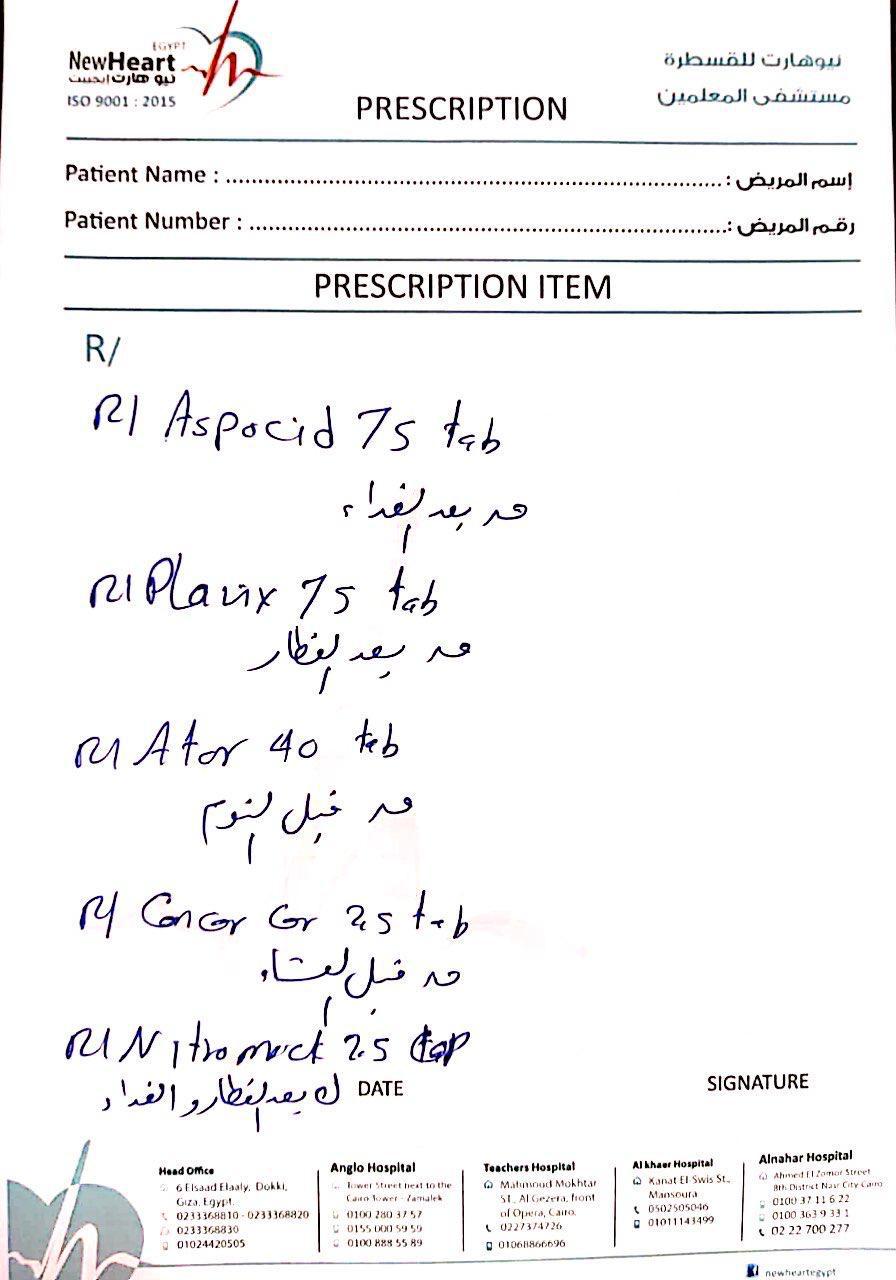 EGYPT
NewHeart
نيو هارت إيجيبت
ISO 9001 : 2015
نيوهارت للقسطرة
مستشفى المعلمين
PRESCRIPTION
Patient Name : إسم المريض :
Patient Number : رقم المريض :
PRESCRIPTION ITEM
R/
R/ Aspocid 75 tab
بعد الغداء
R/ Plavix 75 tab
بعد الفطار
R/ Ator 40 tab
قبل النوم
R/ Concor Cor 2.5 tab
قبل العشاء
R/ Nitromack 2.5 cap
بعد الفطار و الغداء
DATE
SIGNATURE
Head Office
6 Elsaad Elaaly, Dokki,
Giza, Egypt.
0233368810 - 0233368820
0233368830
01024420505
Anglo Hospital
Tower Street next to the
Cairo Tower - Zamalek
0100 280 37 57
0155 000 59 59
0100 888 55 89
Teachers Hospital
Mahmoud Mokhtar
ST., Al Gezera, front
of Opera, Cairo.
0227374726
01068866696
Al khaer Hospital
Kanat El-Swis St.,
Mansoura
0502505046
01011143499
Alnahar Hospital
Ahmed El Zomor Street
8th District Nasr City Cairo
0100 37 11 6 22
0100 363 9 33 1
02 22 700 277
newheartegypt